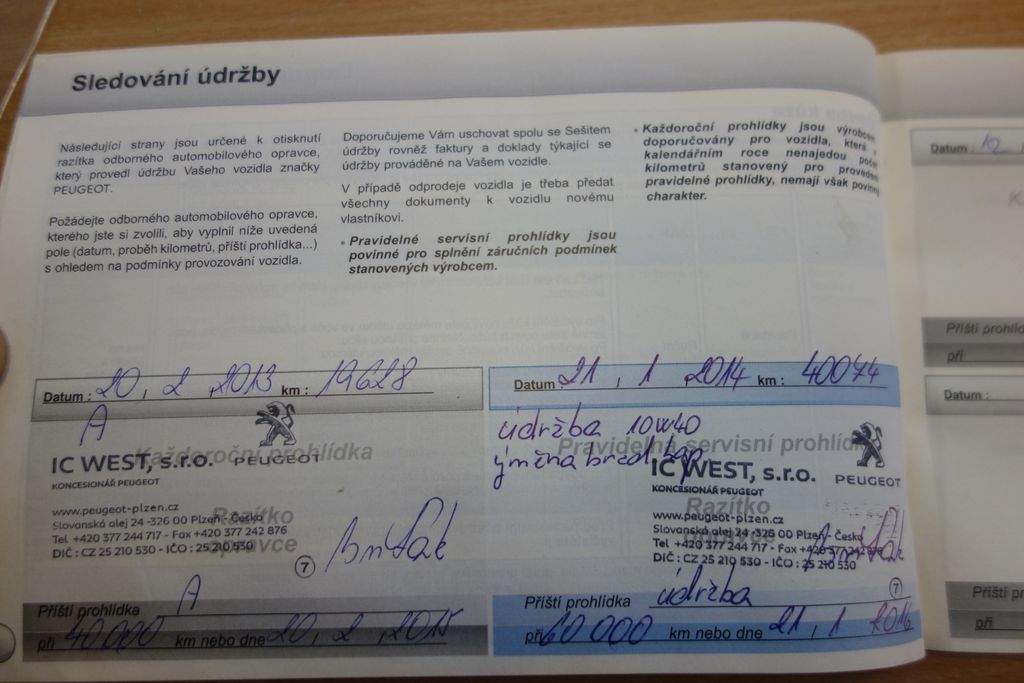 Sledování údržby
Následující strany jsou určené k otisknutí
razítka odborného automobilového opravce,
který provedl údržbu Vašeho vozidla značky
PEUGEOT.
Požádejte odborného automobilového opravce,
kterého jste si zvolili, aby vyplnil níže uvedená
pole (datum, proběh kilometrů, příští prohlídka...)
s ohledem na podmínky provozování vozidla.
Doporučujeme Vám uschovat spolu se Sešitem
údržby rovněž faktury a doklady týkající se
údržby prováděné na Vašem vozidle.
V případě odprodeje vozidla je třeba předat
všechny dokumenty k vozidlu novému
vlastníkovi.
• Pravidelné servisní prohlídky jsou
povinné pro splnění záručních podmínek
stanovených výrobcem.
• Každoroční prohlídky jsou výrobcem
doporučovány pro vozidla, která v
kalendářním roce nenajedou počet
kilometrů stanovený pro provedení
pravidelné prohlídky, nemají však povinný
charakter.
Datum : 20, 2 ,2013 km : 19628
A
Každoroční prohlídka
IC WEST, s.r.o. PEUGEOT
KONCESIONÁŘ PEUGEOT
www.peugeot-plzen.cz
Razítko
Slovanská alej 24 -326 00 Plzeň - Česko
Tel +420 377 244 717 - Fax +420 377 242 876
opravce
DIČ : CZ 25 210 530 - IČO : 25 210 530
7
Příští prohlídka A
při 40000 km nebo dne 20, 2 ,2015
Datum 21 , 1 2014 km : 40074
údržba 10W40
Pravidelná servisní prohlídka
IC WEST, s.r.o. PEUGEOT
KONCESIONÁŘ PEUGEOT
Razítko
www.peugeot-plzen.cz
Slovanská alej 24 -326 00 Plzeň - Česko
Tel +420 377 244 717 - Fax +420 377 242 876
DIČ : CZ 25 210 530 - IČO : 25 210 530
7
Příští prohlídka údržba
při 60000 km nebo dne 21 , 1 2016
Datum : 12
Příští
při
Datum :
Příští
při